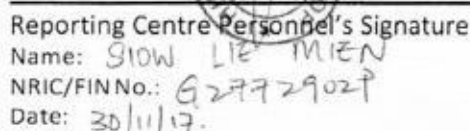 Reporting Centre Personnel's Signature
Name: SIOW LIE MIEN
NRIC/FIN No.: G2772902P
Date: 30/11/17.